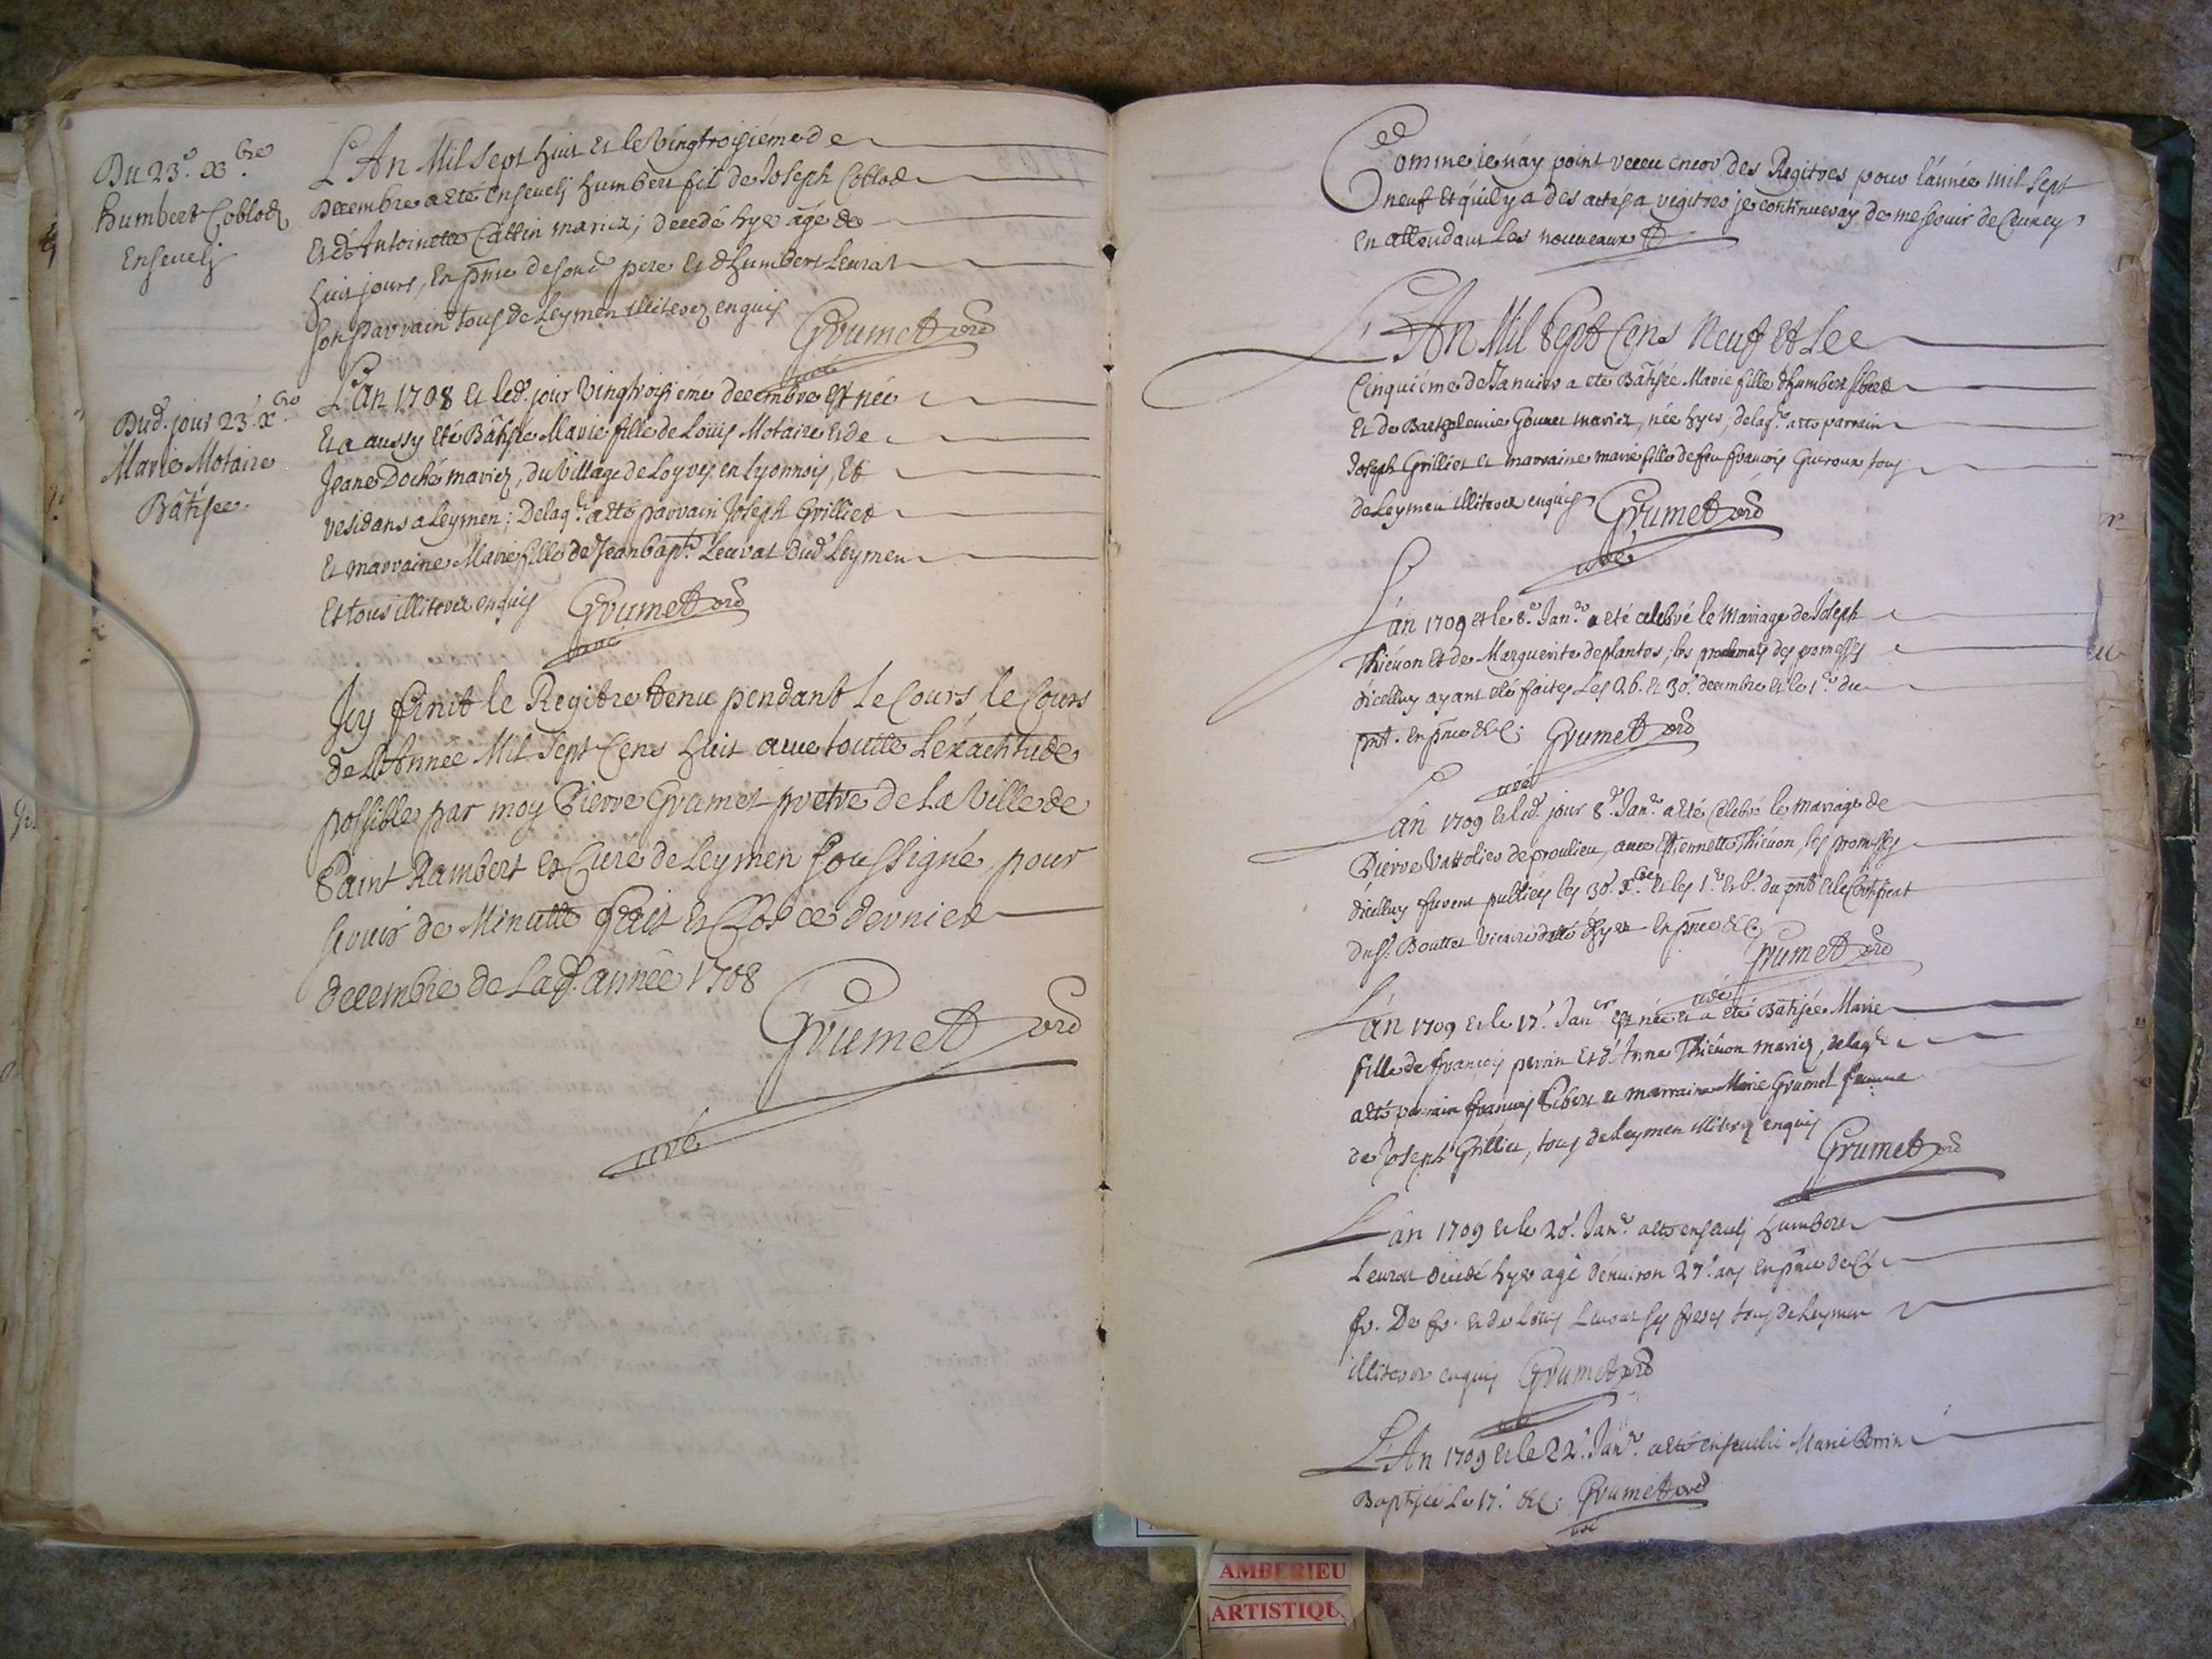 Du 23.e xbre
Humbert Coblod
Ensevelj
L'An Mil Sept huit et le Vingtroisiéme de
Decembre a eté ensevelj humbert fil de Joseph Coblod
Et d'Antoinette Cattin mariez; decedé hyer agé de
huit jours, En pnce de sond. pere et d'humbert Leurat
son parrain tous de Leymen illiterez enquis Grumet ord
curé
Dud. jour 23.e xbre
Marie Motaire
Bâtisée.
L'an 1708 et led. jour Vingtroisiéme decembre est née
Et a aussy eté Bâtisée Marie fille de Loüis Motaire et de
Jeane Doché mariez, du Village de Loyves en Lyonnois, Et
residans a Leymen; Delaq.e a eté parrain Joseph Grillied
Et marraine Marie fille de Jean bapt.e Leurat dud. Leymen
Et tous illiterez enquis Grumet ord
curé
Icy finit le Regitre tenu pendant le Cours le Cours
de L'Annee Mil Sept Cens huit avec toutte L'éxactitude
possible par moy Pierre Grumet pretre de La Ville de
Saint Rambert et Curé de Leymen soussigné, pour
servir de Minutte fait et Clos ce dernier
decembre de Lad. année 1708
Grumet ord
curé
Comme ie n'ay point receu encor des Regitres pour l'année mil sept
neuf et qu'il y a des actes a regitrer je continueray de me servir de Ceuxcy
En attendant Les nouveaux
L'An Mil Sept Cens Neuf et Le
Cinquiéme de Janvier a eté Bâtisée Marie fille d'humbert
Et de Barthelemie Gounet mariez, née hyer, delaq.e a eté parrain
Joseph Grillier et marraine marie fille de feu francois Gueroux, tous
de Leymen illiterez enquis Grumet ord
curé
L'an 1709 et le 8.e Jan.er a eté celebré le Mariage de Joseph
Thiévon Et de Marguerite deplantes, les proclamãs des promesses
d'icelluy ayant eté faites Les 26. et 30.e decembre et le 1.er du
pnt. en pnce &c. Grumet ord
curé
L'an 1709 et led. jour 8.e Jan.er a eté Celebré le mariage de
Pierre Vattolier de proulieu, avec Estiennette Thiévon, les promesses
d'icelluy furent publiées les 30.e xbre et les 1.er et 6.e du pnt et le Certificat
du Sr. Bouttet Vicaire datté d'hyer En pnce &c.
Grumet ord
curé
L'an 1709 et le 17.e Jan.er est née et a eté Batisée Marie
fille de francois perrin et d'Anne Thiévon mariez, delaq.e
a eté parrain francois Sibert et marraine Marie Grumet femme
de Joseph Grillier, tous de Leymen illiterez enquis
Grumet ord
L'an 1709 et le 20.e Jan.er a eté ensevelj humbert
Leurat decedé hyer agé d'environ 27.e ans en pnce de Cl
fr. De fr. et de Loüis Leurat ses freres tous de Leymen
illiterez enquis Grumet ord
curé
L'An 1709 et le 22.e Jan.er a eté ensevelie Marie Perrin
Baptisée Le 17.e &c. Grumet ord
curé
AMBERIEU
ARTISTIQU